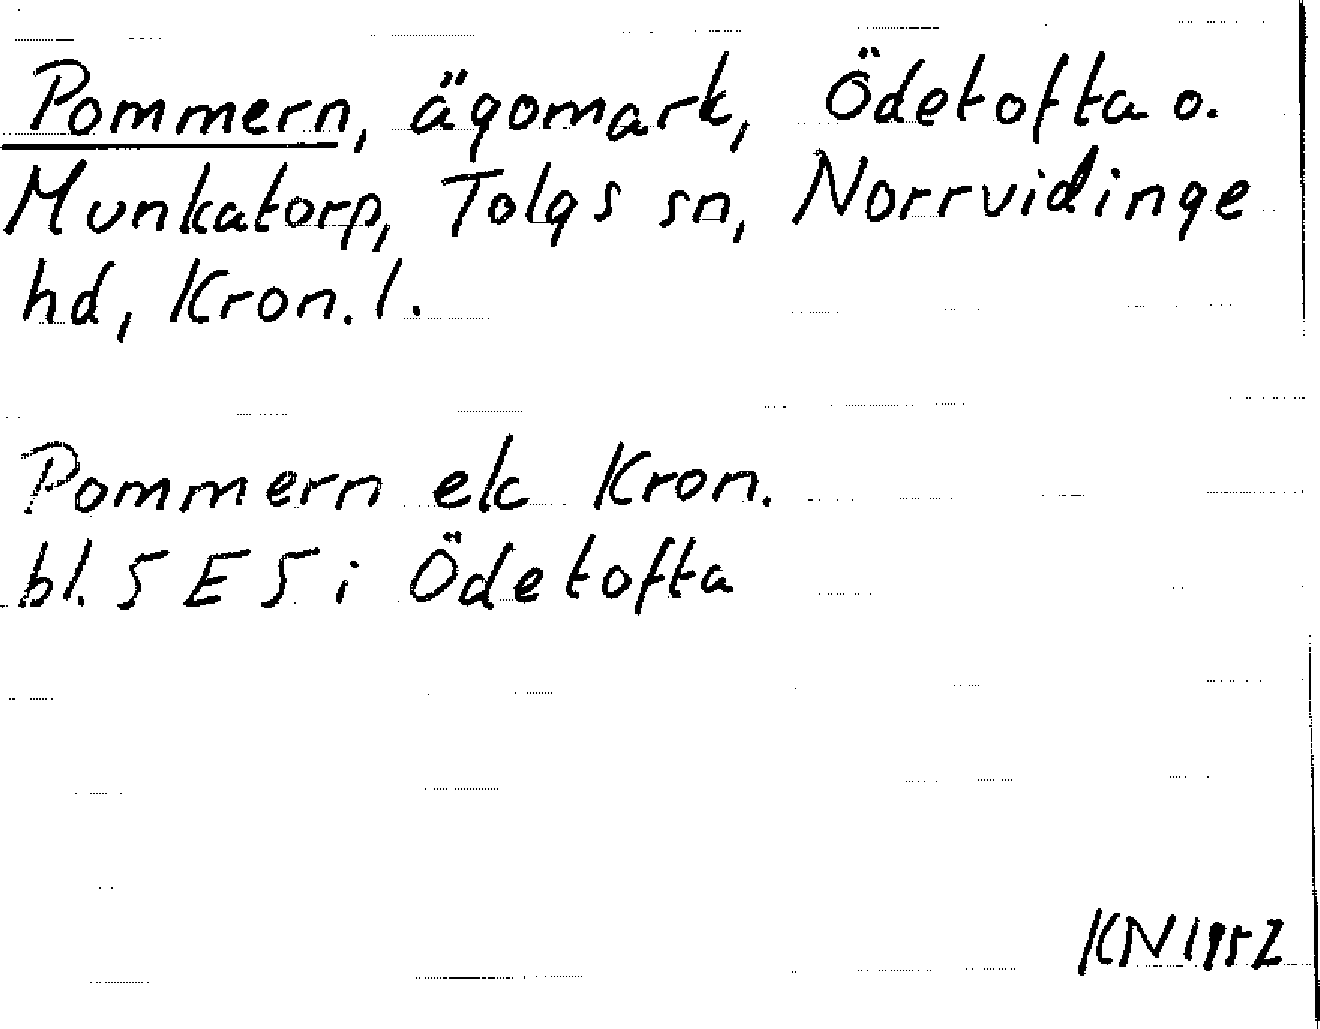 Pommern, ägomark, Ödetofta o.
Munkatorp, Tolgs sn, Norrvidinge
hd, Kron. l.
Pommern ek Kron.
bl. 5 E 5 i Ödetofta
KN 1952